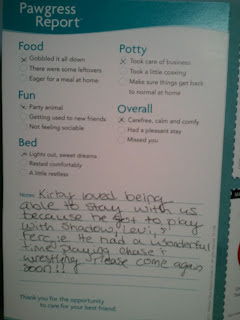 Pawgress
Report
Food
Gobbled it all down
There were some leftovers
Eager for a meal at home
Fun
Party animal
Getting used to new friends
Not feeling sociable
Bed
Lights out, sweet dreams
Rested comfortably
A little restless
Potty
Took care of business
Took a little coaxing
Make sure things get back
to normal at home
Overall
Carefree, calm and comfy
Had a pleasant stay
Missed you
Notes: Kirby loved being
able to stay with us
because he got to play
with Shadow, Levi, &
Percie. He had a wonderful
time playing chase &
wrestling. Please come again
soon!!
Thank you for the opportunity
to care for your best friend!